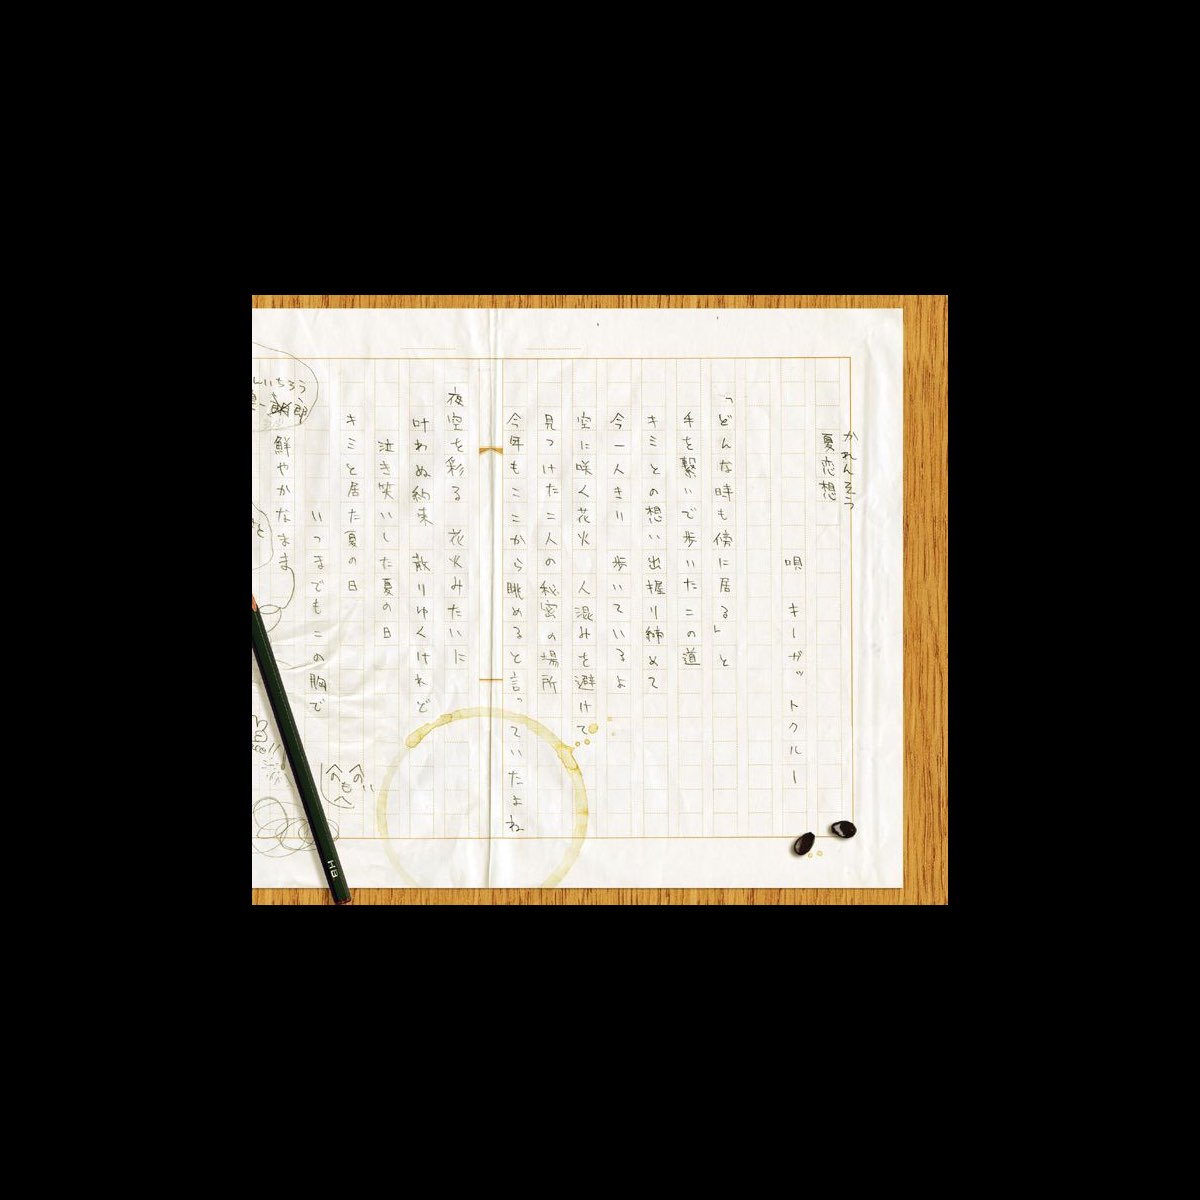 かれんそう
夏恋想
唄 キーガットクルー
「どんな時も傍に居る」と
手を繋いで歩いたこの道
キミとの想い出握り締めて
今一人きり 歩いているよ
空に咲く花火 人混みを避けて
見つけた二人の秘密の場所
今年もここから眺めると言っていたよね
夜空を彩る 花火みたいに
叶わぬ約束 散りゆくけれど
泣き笑いした夏の日
キミと居た夏の日
いつまでもこの胸で
鮮やかなまま
んいちろう
郎
と
へのへの
も
へ
HB